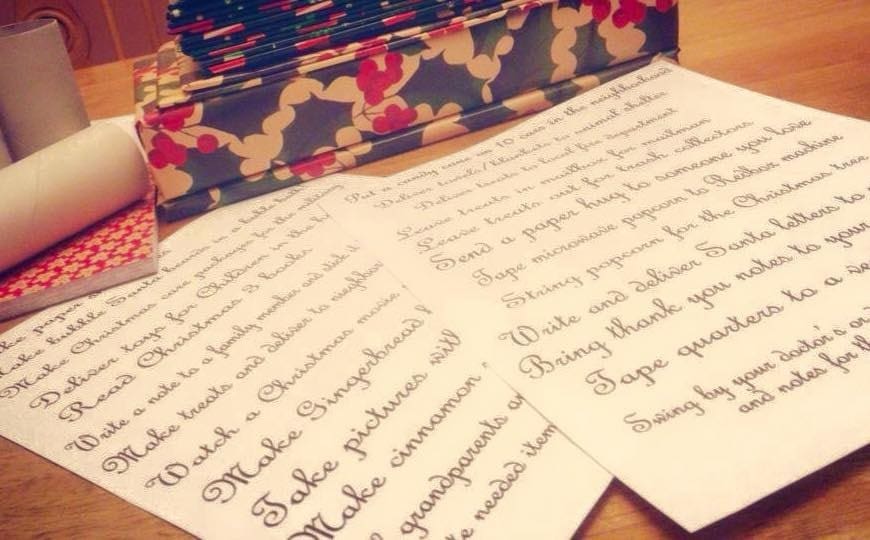 Make paper
Make bubble Santa beards in a bubble bath
Make Christmas care packages for the military
Deliver toys for Children in the
Read Christmas 3 books
Write a note to a family member and stick
Make treats and deliver to neighbor
Watch a Christmas movie
Make Gingerbread
Take pictures with
Make cinnamon
grandparents
needed item
Put a candy cane on 10 cars in the neighborhood
Deliver towels/blankets to animal shelter
Deliver treats to local fire department
Leave treats in mailbox for mailman
Leave treats out for trash collectors
Send a paper hug to someone you love
Tape microwave popcorn to Redbox machine
String popcorn for the Christmas tree
Write and deliver Santa letters to
Bring thank you notes to your
Tape quarters to a
Swing by your doctor's or
and notes for th